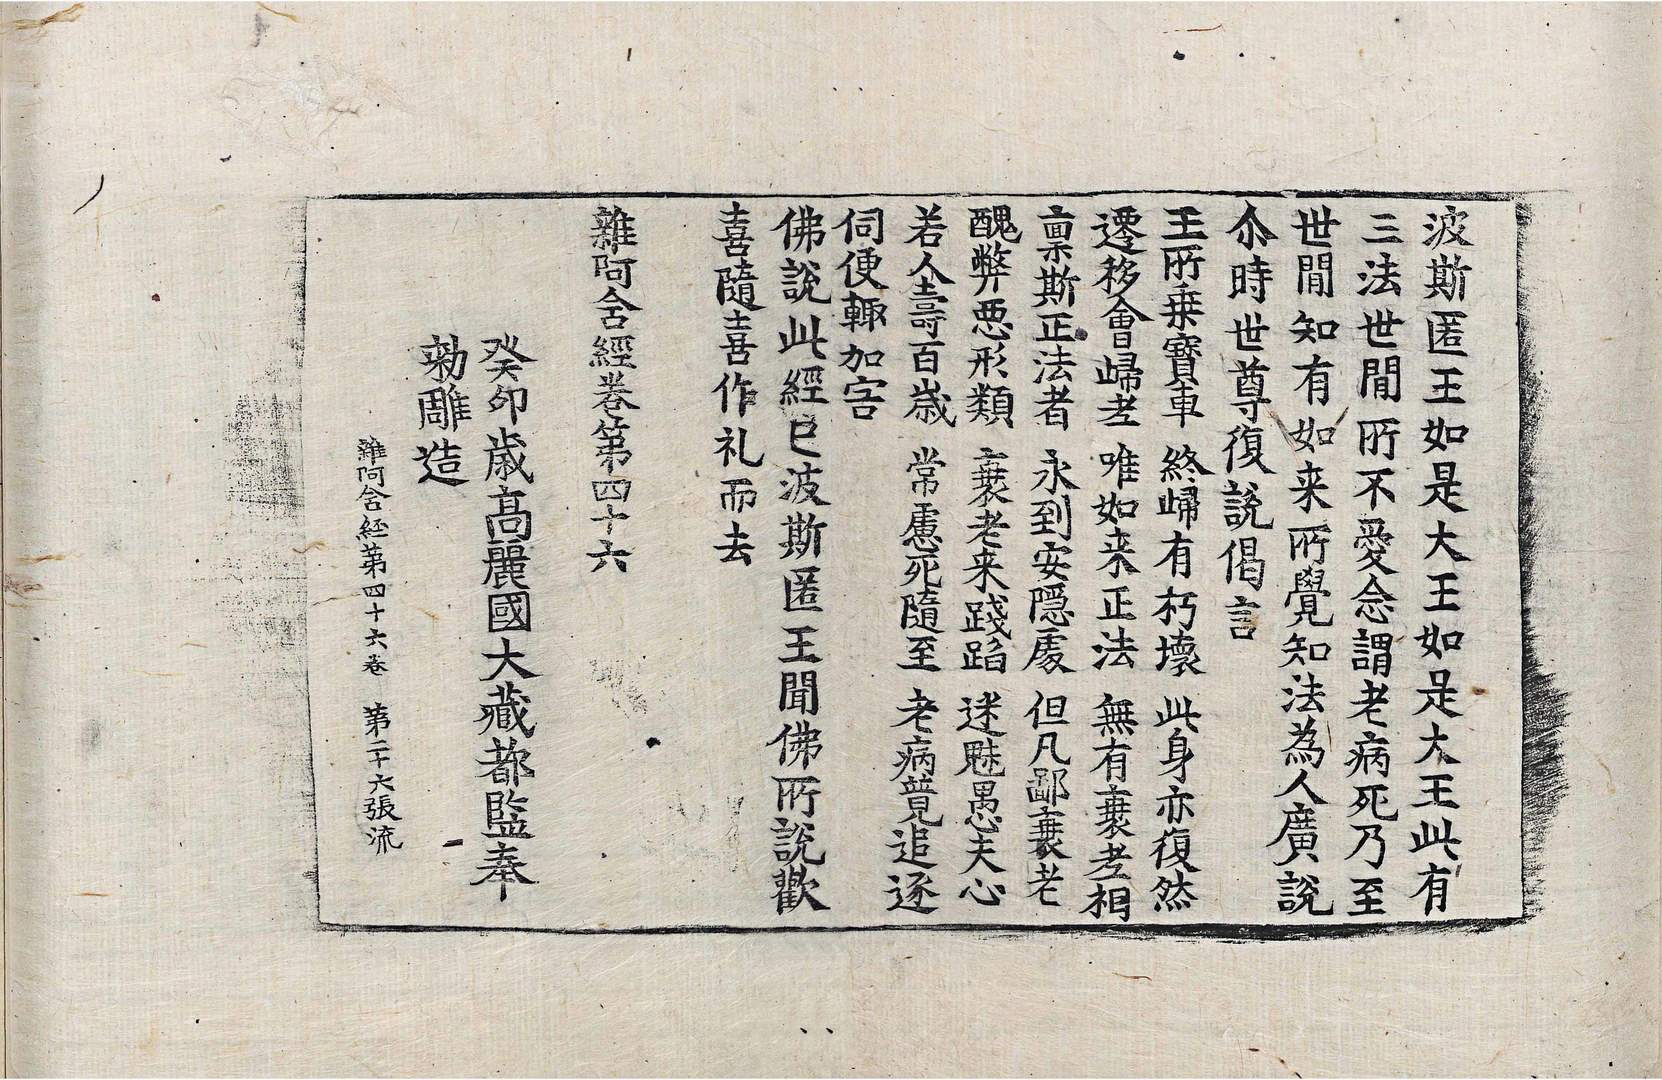 波斯匿王如是大王如是大王此有
三法世閒所不愛念謂老病死乃至
世閒知有如来所覺知法為人廣說
尒時世尊復說偈言
王所乗寶車 終歸有朽壞 此身亦復然
遷移會歸老 唯如来正法 無有衰老相
稟斯正法者 永到安隱處 但凡鄙衰老
醜弊惡形類 衰老来踐蹈 迷魅愚夫心
若人壽百歲 常慮死隨至 老病競追逐
伺便輙加害
佛說此經已波斯匿王聞佛所說歡
喜隨喜作礼而去
雜阿含經卷第四十六
癸卯歲高麗國大藏都監奉
勅雕造
雜阿含経第四十六卷 第二十六張 流